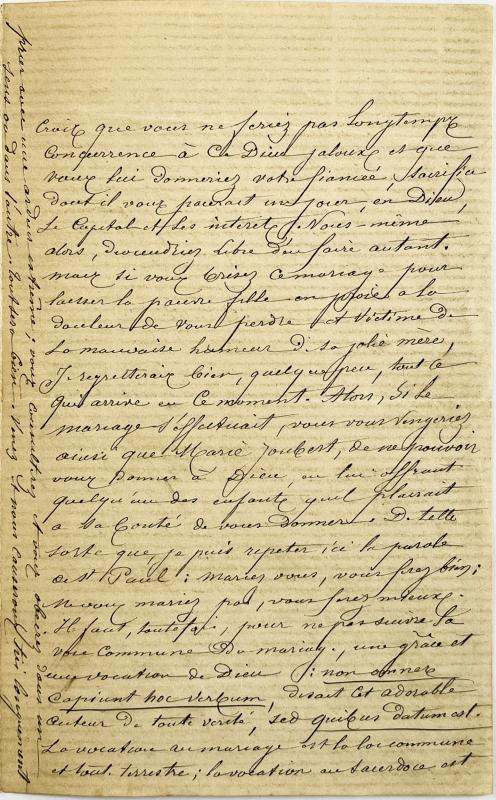 Croix que vous ne feriez pas longtemps
Concurrence à Ce Dieu jaloux et que
vous lui donneriez votre fiancée, sacrifice
dont il vous paierait un jour, en Dieu,
Le Capital et les interêts. Vous-même
alors, deviendriez libre d'en faire autant.
mais si vous brisez ce mariage pour
laisser la pauvre fille en proie à la
douleur de vous perdre et victime de
la mauvaise humeur de sa jolie mère,
Je regretterais bien, quelque peu, tout ce
qui arrive en ce moment. Alors, si le
mariage s'effectuait, vous vous vengeriez
ainsi que Marie Joubert, de ne pouvoir
vous donner à Dieu, en lui offrant
quelqu'un des enfants qu'il plairait
à sa bonté de vous donner. De telle
sorte que je puis repeter ici la parole
de St Paul : mariez vous, vous ferez bien ;
ne vous mariez pas, vous ferez mieux.
Il faut, toutefois, pour ne pas suivre la
voie commune du mariage, une grâce et
une vocation de Dieu : non omnes
capiunt hoc verbum, disait cet adorable
auteur de toute verité, sed quibus datum est.
La vocation au mariage est la loi commune
et tout terrestre ; la vocation au sacerdoce est
prier avec une ardeur extrême ; vous consulterez et vous obeirez dans un
sens ou dans l'autre tout sera bien. Venez et nous causerons longuement